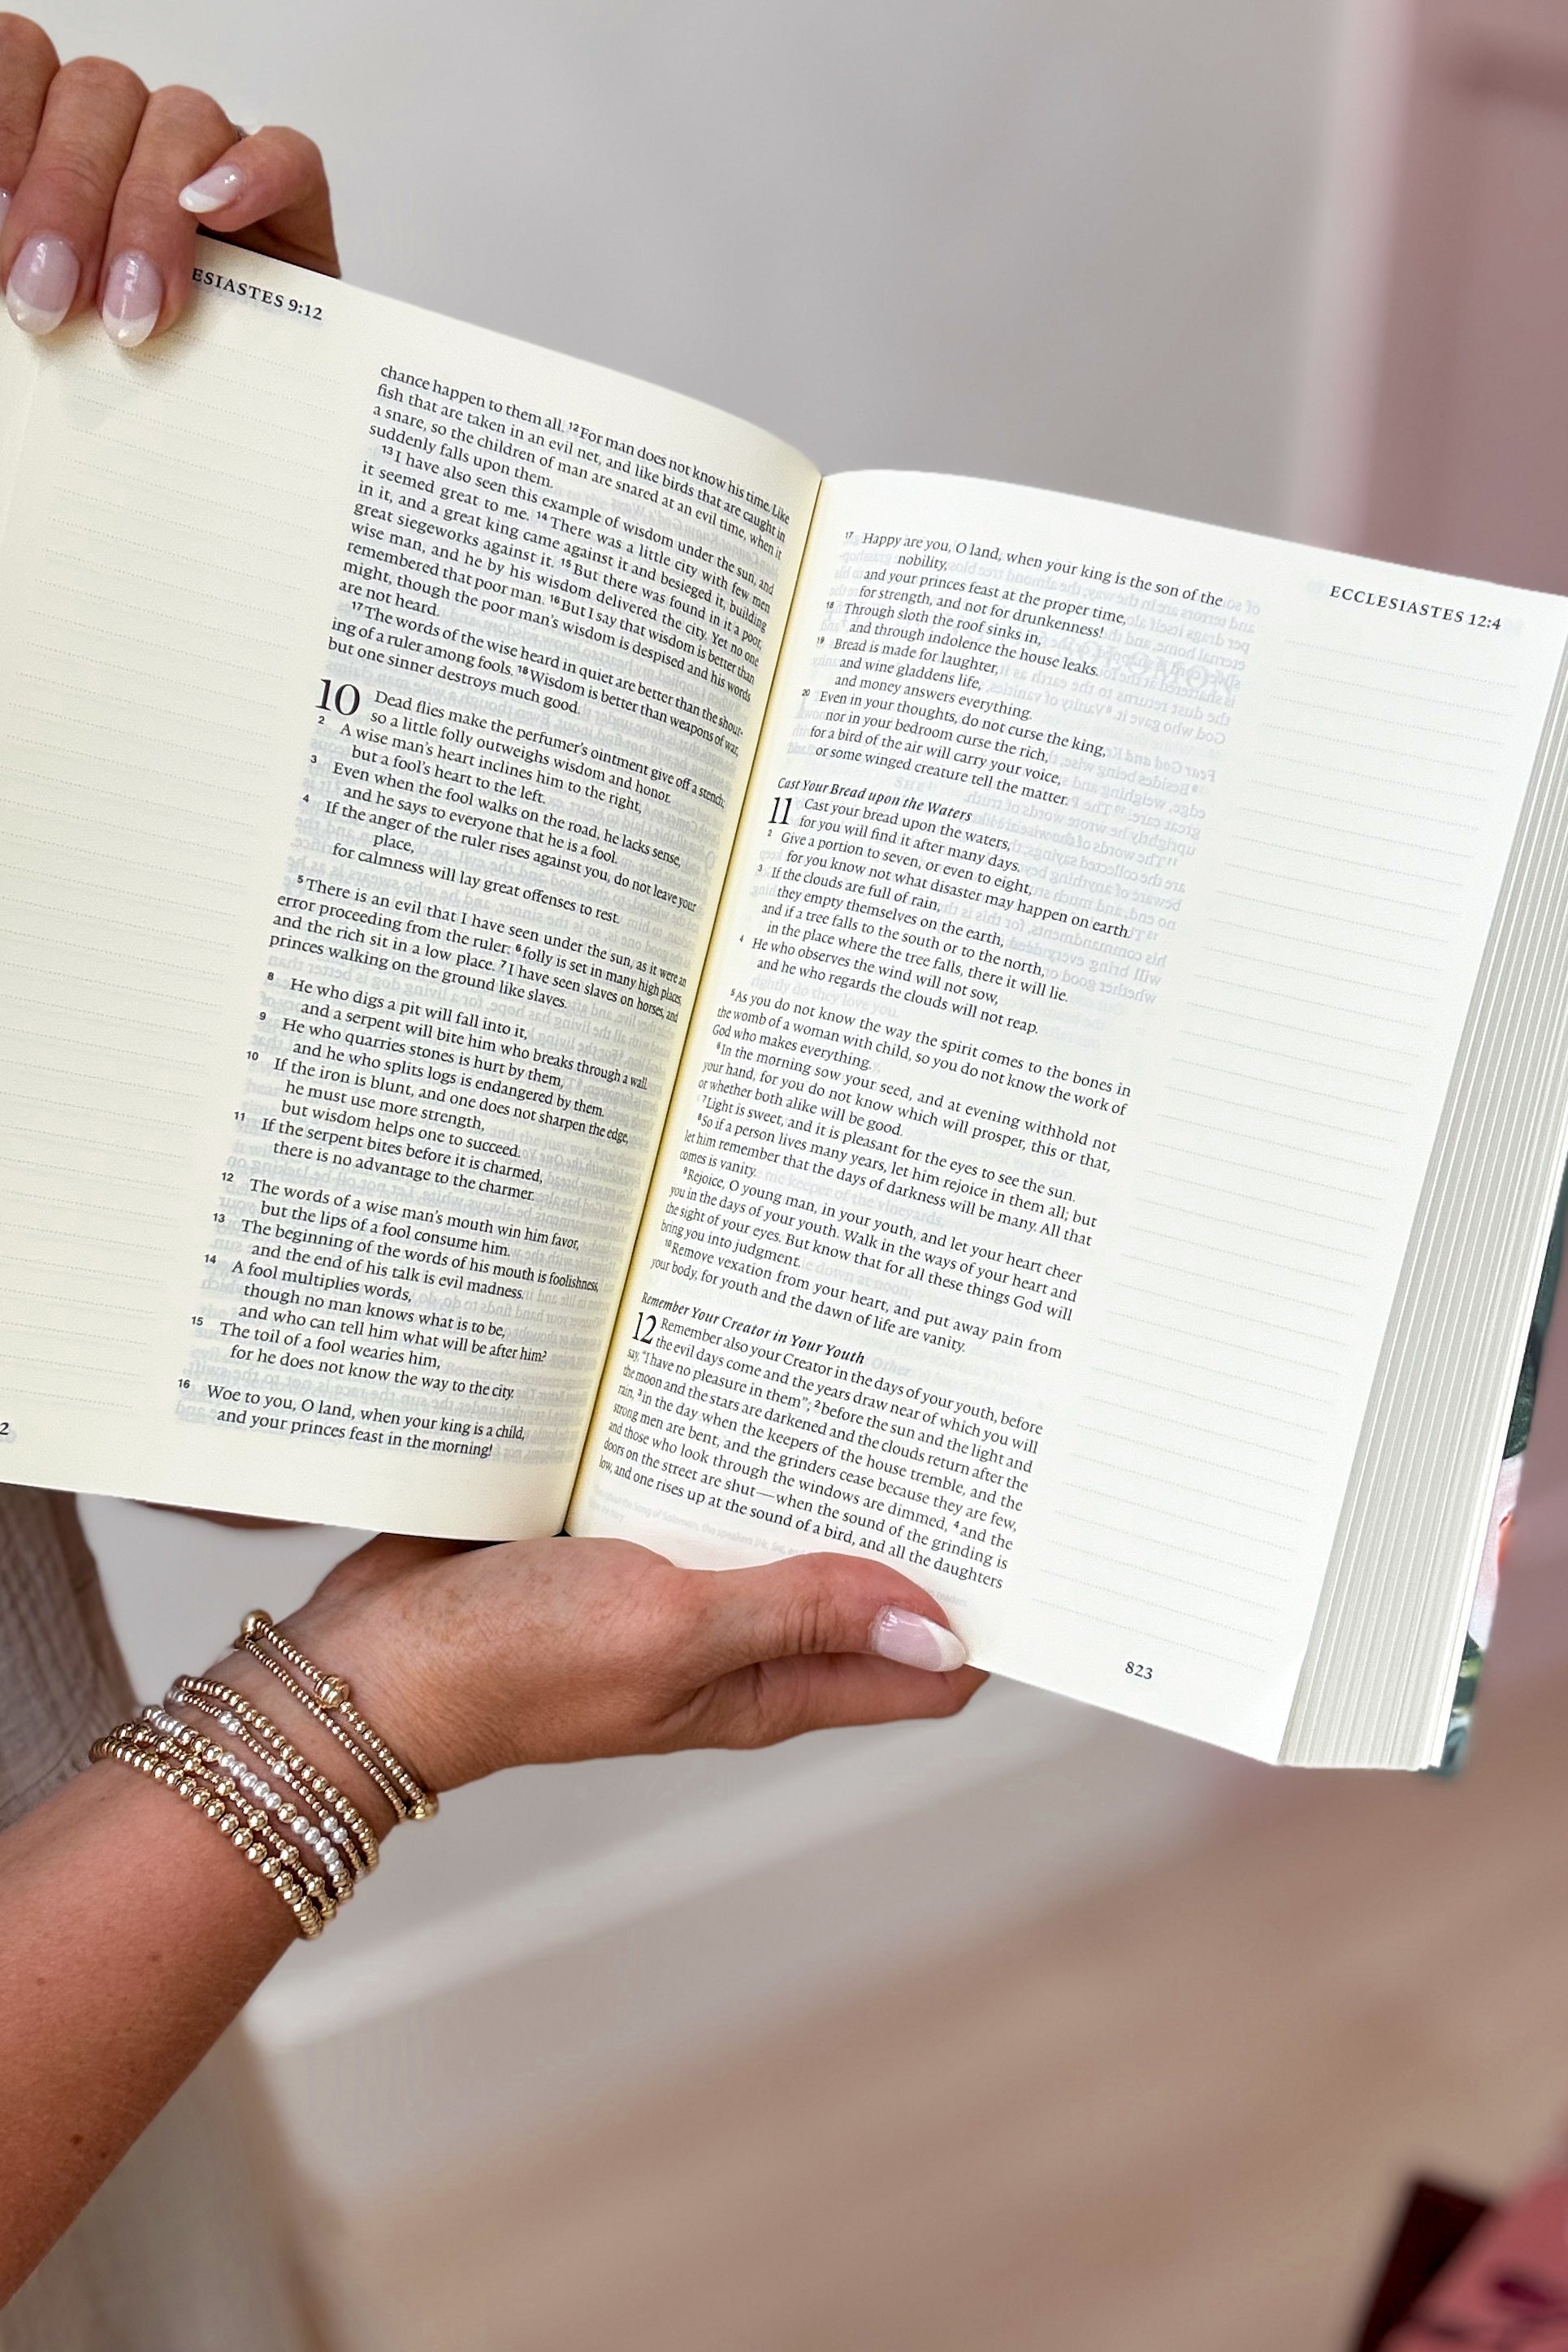 ESIASTES 9:12
chance happen to them all. 12 For man does not know his time. Like
fish that are taken in an evil net, and like birds that are caught in
a snare, so the children of man are snared at an evil time, when it
suddenly falls upon them.
13 I have also seen this example of wisdom under the sun, and
it seemed great to me. 14 There was a little city with few men
in it, and a great king came against it and besieged it, building
great siegeworks against it. 15 But there was found in it a poor,
wise man, and he by his wisdom delivered the city. Yet no one
remembered that poor man. 16 But I say that wisdom is better than
might, though the poor man's wisdom is despised and his words
are not heard.
17 The words of the wise heard in quiet are better than the shout-
ing of a ruler among fools. 18 Wisdom is better than weapons of war,
but one sinner destroys much good.
10 Dead flies make the perfumer's ointment give off a stench;
so a little folly outweighs wisdom and honor.
2 A wise man's heart inclines him to the right,
but a fool's heart to the left.
3 Even when the fool walks on the road, he lacks sense,
and he says to everyone that he is a fool.
4 If the anger of the ruler rises against you, do not leave your
place,
for calmness will lay great offenses to rest.
5 There is an evil that I have seen under the sun, as it were an
error proceeding from the ruler: 6 folly is set in many high places,
and the rich sit in a low place. 7 I have seen slaves on horses, and
princes walking on the ground like slaves.
8 He who digs a pit will fall into it,
and a serpent will bite him who breaks through a wall.
9 He who quarries stones is hurt by them,
and he who splits logs is endangered by them.
10 If the iron is blunt, and one does not sharpen the edge,
he must use more strength,
but wisdom helps one to succeed.
11 If the serpent bites before it is charmed,
there is no advantage to the charmer.
12 The words of a wise man's mouth win him favor,
but the lips of a fool consume him.
13 The beginning of the words of his mouth is foolishness,
and the end of his talk is evil madness.
14 A fool multiplies words,
though no man knows what is to be,
and who can tell him what will be after him?
15 The toil of a fool wearies him,
for he does not know the way to the city.
16 Woe to you, O land, when your king is a child,
and your princes feast in the morning!
2
ECCLESIASTES 12:4
17 Happy are you, O land, when your king is the son of the
nobility,
and your princes feast at the proper time,
for strength, and not for drunkenness!
18 Through sloth the roof sinks in,
and through indolence the house leaks.
19 Bread is made for laughter,
and wine gladdens life,
and money answers everything.
20 Even in your thoughts, do not curse the king,
nor in your bedroom curse the rich,
for a bird of the air will carry your voice,
or some winged creature tell the matter.
Cast Your Bread upon the Waters
11 Cast your bread upon the waters,
for you will find it after many days.
2 Give a portion to seven, or even to eight,
for you know not what disaster may happen on earth.
3 If the clouds are full of rain,
they empty themselves on the earth,
and if a tree falls to the south or to the north,
in the place where the tree falls, there it will lie.
4 He who observes the wind will not sow,
and he who regards the clouds will not reap.
5 As you do not know the way the spirit comes to the bones in
the womb of a woman with child, so you do not know the work of
God who makes everything.
6 In the morning sow your seed, and at evening withhold not
your hand, for you do not know which will prosper, this or that,
or whether both alike will be good.
7 Light is sweet, and it is pleasant for the eyes to see the sun.
8 So if a person lives many years, let him rejoice in them all; but
let him remember that the days of darkness will be many. All that
comes is vanity.
9 Rejoice, O young man, in your youth, and let your heart cheer
you in the days of your youth. Walk in the ways of your heart and
the sight of your eyes. But know that for all these things God will
bring you into judgment.
10 Remove vexation from your heart, and put away pain from
your body, for youth and the dawn of life are vanity.
Remember Your Creator in Your Youth
12 Remember also your Creator in the days of your youth, before
the evil days come and the years draw near of which you will
say, "I have no pleasure in them"; 2 before the sun and the light and
the moon and the stars are darkened and the clouds return after the
rain, 3 in the day when the keepers of the house tremble, and the
strong men are bent, and the grinders cease because they are few,
and those who look through the windows are dimmed, 4 and the
doors on the street are shut—when the sound of the grinding is
low, and one rises up at the sound of a bird, and all the daughters
823